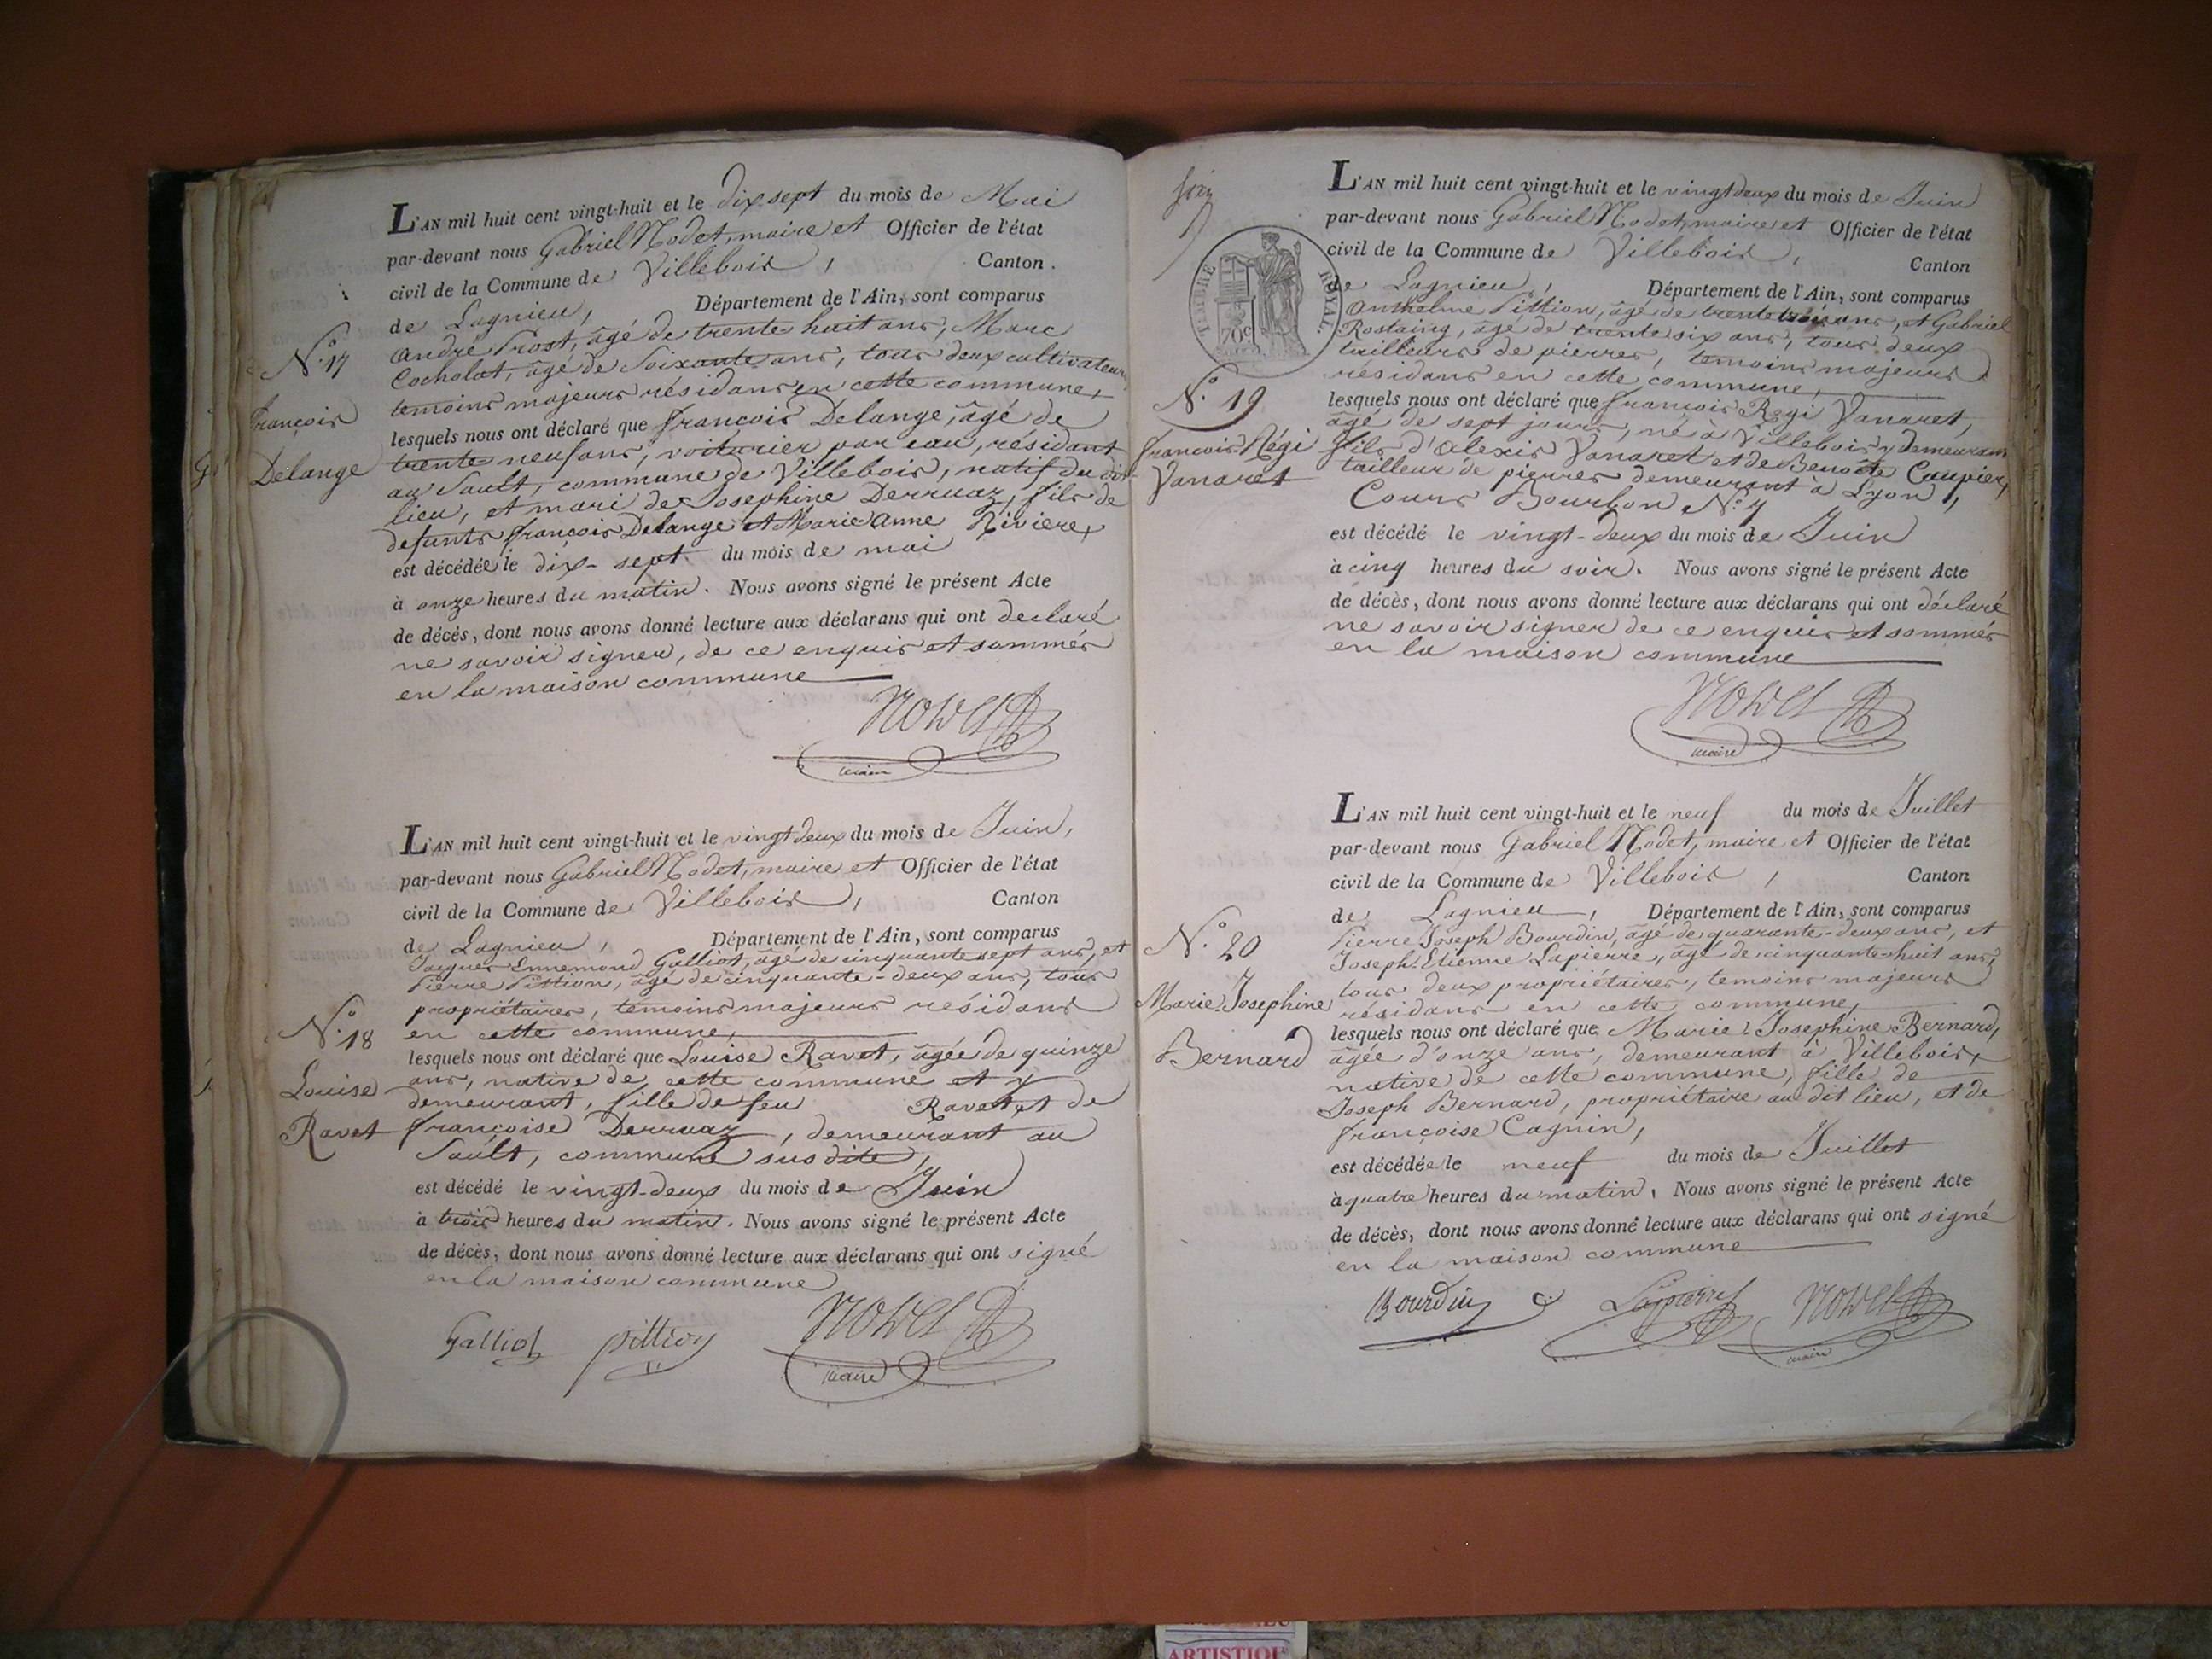 L'AN mil huit cent vingt-huit et le dix sept du mois de Mai
par-devant nous Gabriel Nodet, maire et Officier de l'état
civil de la Commune de Villebois, Canton
de Lagnieu, Département de l'Ain, sont comparus
André Prost, âgé de trente huit ans, Marc
Cocholat, âgé de Soixante ans, tous deux cultivateurs
temoins majeurs résidans en cette commune,
lesquels nous ont déclaré que françois Delange, âgé de
trente neuf ans, voiturier par eau, résidant
au Sault, commune de Villebois, natif du dit
lieu, et mari de Josephine Derruaz, fils de
defunts françois Delange et Marie Anne Riviere,
est décédé le dix-sept du mois de mai
à onze heures du matin. Nous avons signé le présent Acte
de décés, dont nous avons donné lecture aux déclarans qui ont declaré
ne savoir signer, de ce enquis et sommés
en la maison commune
Nodet
maire
N.o 17
françois
Delange
L'AN mil huit cent vingt-huit et le vingt deux du mois de Juin,
par-devant nous Gabriel Nodet, maire et Officier de l'état
civil de la Commune de Villebois, Canton
de Lagnieu, Département de l'Ain, sont comparus
Jacques Ennemond Galliot, âgé de cinquante sept ans, et
Pierre Pittion, âgé de cinquante-deux ans, tous
propriétaires, temoins majeurs résidans
en cette commune,
lesquels nous ont déclaré que Louise Ravet, âgée de quinze
ans, native de cette commune et y
demeurant, fille de feu Ravet, et de
françoise Derruaz, demeurant au
Sault, commune sus dite,
est décédé le vingt-deux du mois de Juin
à trois heures du matin. Nous avons signé le présent Acte
de décès, dont nous avons donné lecture aux déclarans qui ont signé
en la maison commune
Galliot pittion Nodet
maire
N.o 18
Louise
Ravet
TIMBRE ROYAL.
70c
L'AN mil huit cent vingt-huit et le vingt deux du mois de Juin
par-devant nous Gabriel Nodet, maire et Officier de l'état
civil de la Commune de Villebois, Canton
de Lagnieu, Département de l'Ain, sont comparus
Anthelme Pittion, âgé de trente trois ans, et Gabriel
Rostaing, âgé de trente six ans, tous deux
tailleurs de pierres, temoins majeurs
résidans en cette commune,
lesquels nous ont déclaré que françois Regi Vanaret,
âgé de sept jours, né à Villebois y demeurant
fils d'Alexis Vanaret et de Benoîte Caupier,
tailleur de pierres demeurant à Lyon,
Cours Bourbon N.o 7
est décédé le vingt-deux du mois de Juin
à cinq heures du soir. Nous avons signé le présent Acte
de décès, dont nous avons donné lecture aux déclarans qui ont déclaré
ne savoir signer de ce enquis et sommés
en la maison commune
Nodet
maire
N.o 19
francois Régi
Vanaret
L'AN mil huit cent vingt-huit et le neuf du mois de Juillet
par-devant nous Gabriel Nodet, maire et Officier de l'état
civil de la Commune de Villebois, Canton
de Lagnieu, Département de l'Ain, sont comparus
Pierre Joseph Bourdin, âgé de quarante-deux ans, et
Joseph Etienne Lapierre, âgé de cinquante-huit ans,
tous deux propriétaires, temoins majeurs
résidans en cette commune,
lesquels nous ont déclaré que Marie-Josephine Bernard,
âgée d'onze ans, demeurant à Villebois,
native de cette commune, fille de
Joseph Bernard, propriétaire au dit lieu, et de
françoise Cagnin,
est décédée le neuf du mois de Juillet
à quatre heures du matin, Nous avons signé le présent Acte
de décès, dont nous avons donné lecture aux déclarans qui ont signé
en la maison commune
Bourdin Lapierre Nodet
maire
N.o 20
Marie-Josephine
Bernard